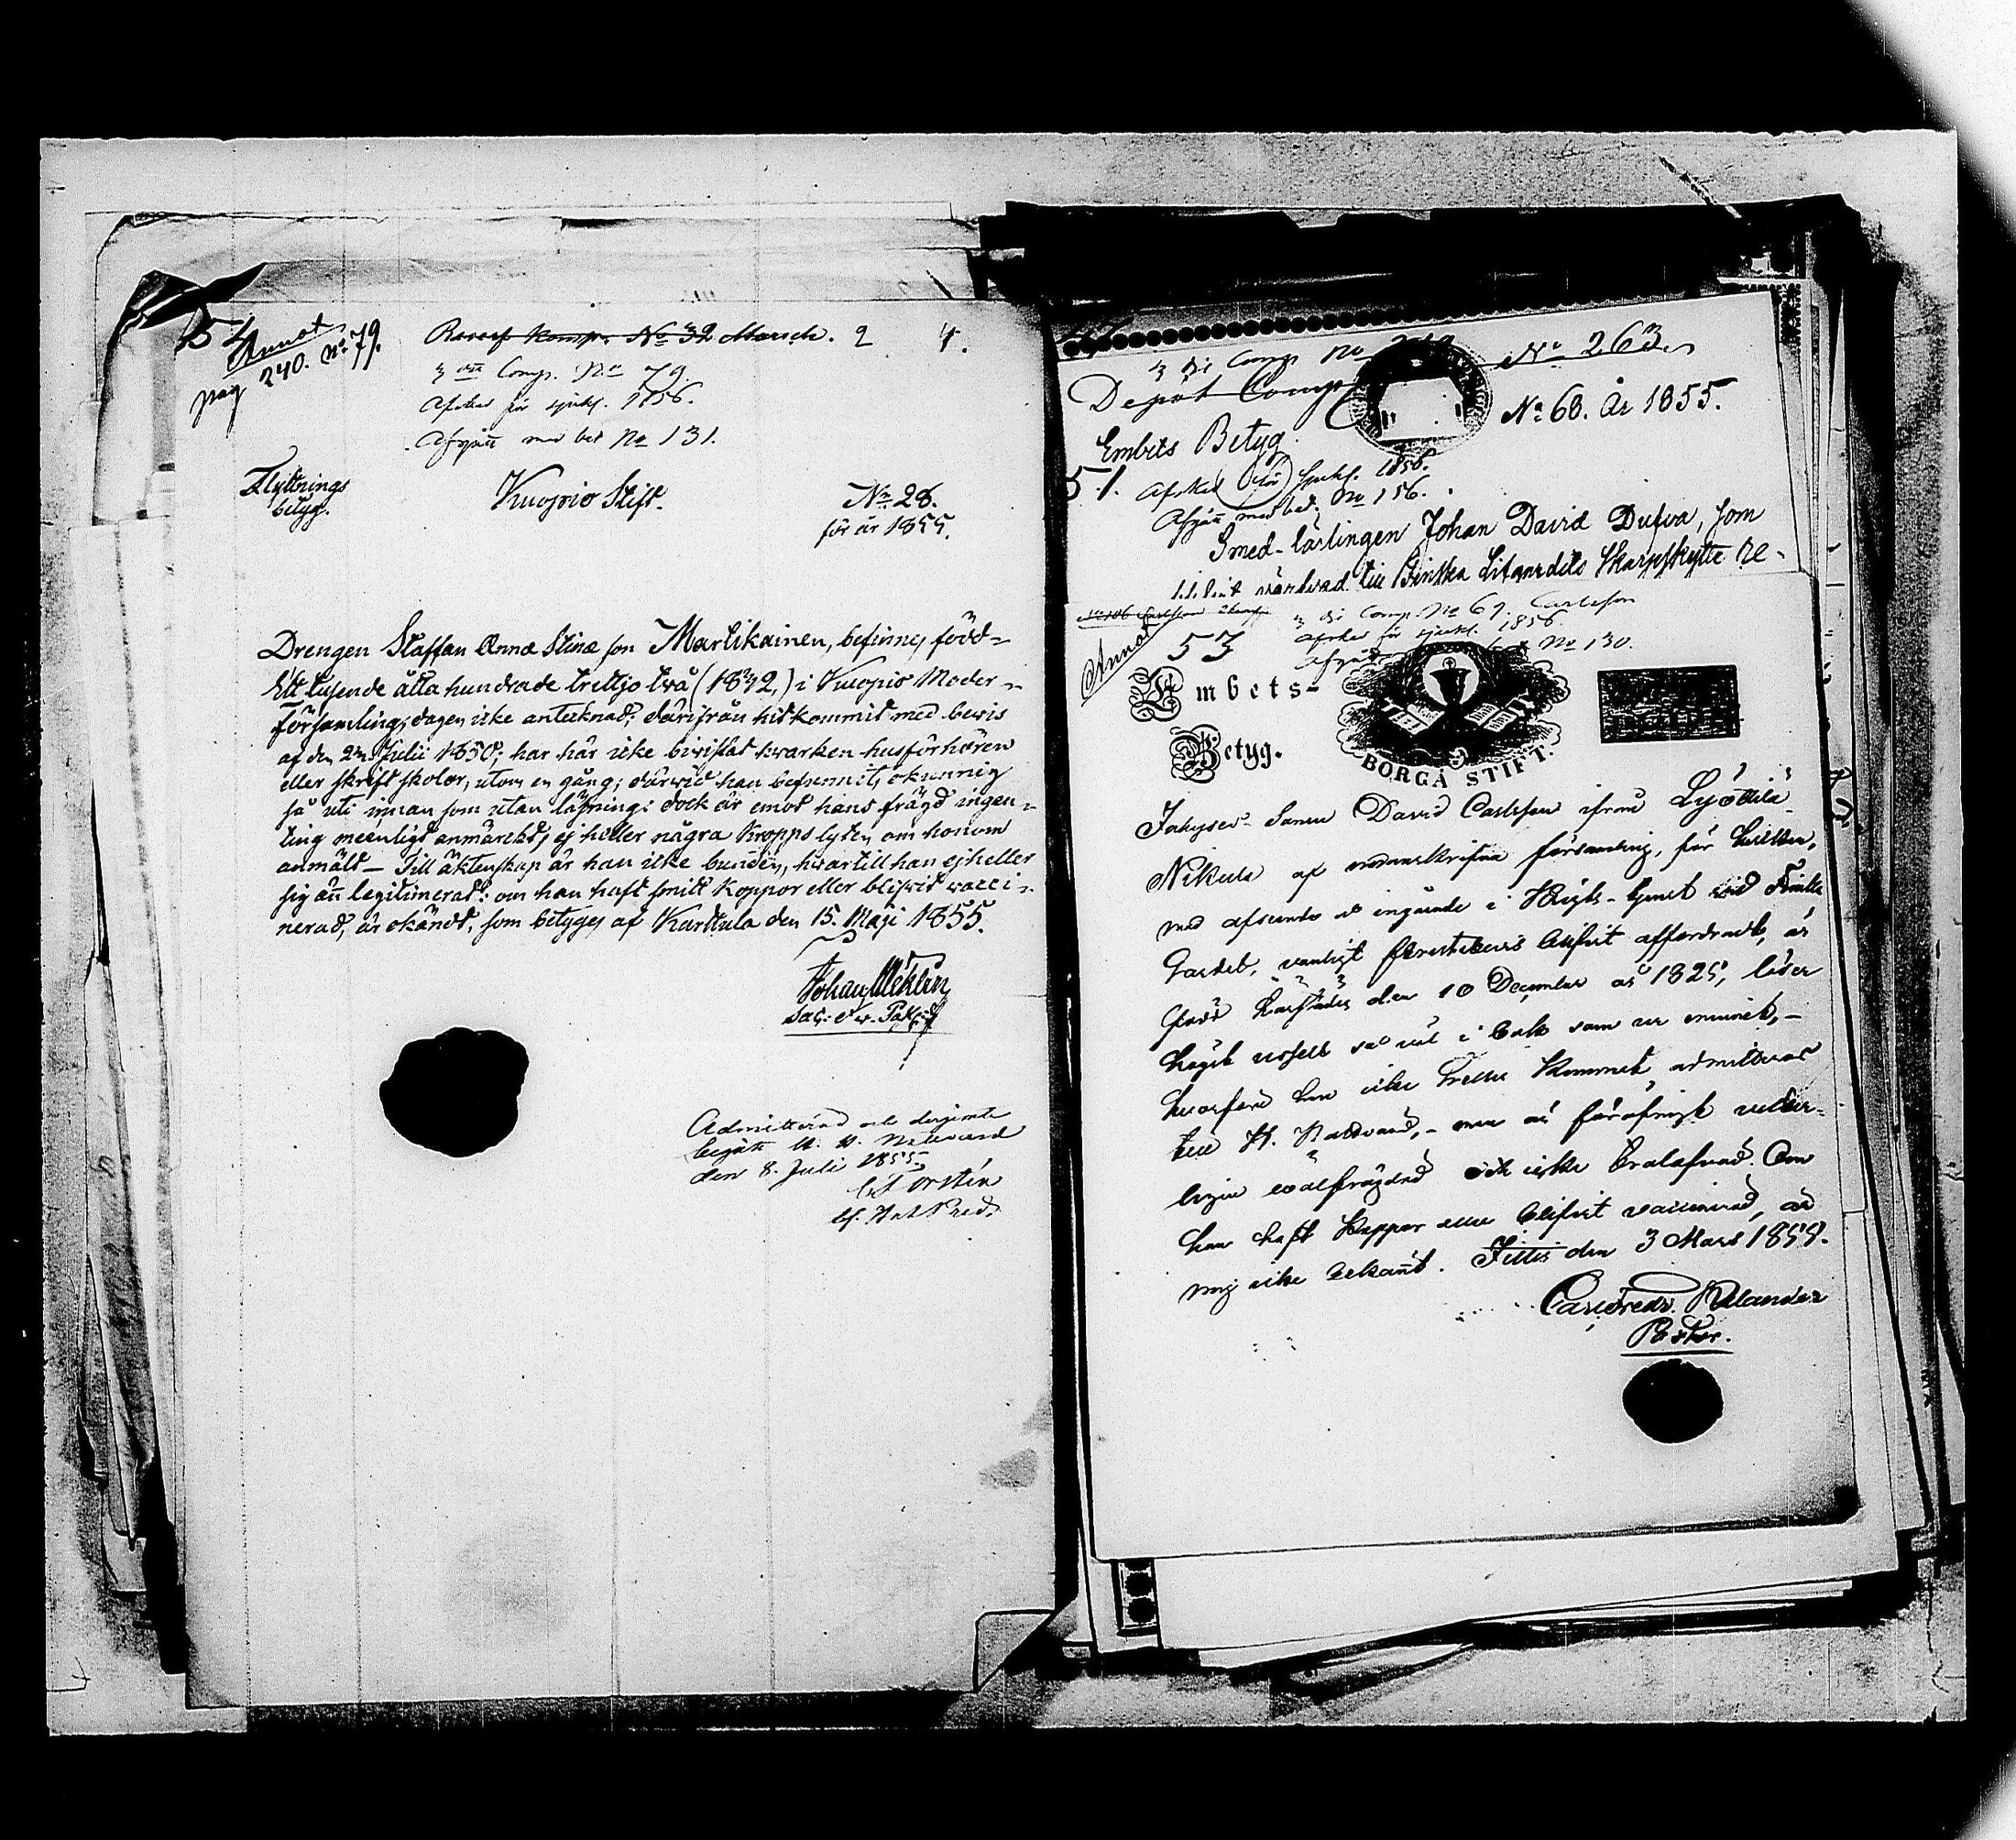 54
Annot
pag 240. No 79.
Reserf komp. No 32 Marsch. 2 4.
3 die Comp. No 79.
Afsked för sjukl. 1856.
Afgått med bet No 131.
Flyttnings
betyg.
Kuopio Stift.
No 28.
för år 1855.
Drengen Staffan Anna Stinæ son Martikainen, befinnes född -
Ett tusende åtta hundrade trettjo två (1832,) i Kuopio Moder -
Församling, dagen icke antecknad; därifrån hitkommit med bevis
af den 22 Julii 1850; har här icke bivistat hvarken husförhören
eller skriftskolor, utom en gång; därvid han befunnits okunnig
så uti innan som utan läsning: dock är emot hans frägd ingen -
ting meenligt anmärckt, ej heller några kropps lyten om honom
anmält - Till äktenskap är han icke bunden, hvartill han ejheller
sig än legitimerat: om han haft smitt koppor eller blifvit vacci -
nerad, är okändt, som betyges af Karttula den 15. Maji 1855.
Johan Meklin
Sac: o v. Past:
Admitterad och derjemte
begått H. H. Nattvard
den 8. Juli 1855
3 die Comp No
Depôt Comp No 263.
No 68. År 1855.
Embets Betyg.
51. Afsked för sjukl. 1856.
Afgått med bet. No 156.
Smed-lärlingen Johan David Dufva, som
blifvit värfvad till Finska Litgardets Skarpskytte Ba -
3 die Comp. No 69. Carlsson
Annot 53 Afsked för sjukl. 1856.
Afgått No 130.
Embets-
Betyg.
BORGÅ STIFT.
Sonen David Carlsson ifrån Lyöttilä
Nikula af undanskrifna församling, för hvilken,
med afseende å ingående i Krigs-tjenst vid Finska
Gardet, vanligt Prestebevis blifvit affordradt, är
född den 10 December år 1825, läser
högst uselt så väl i bok som ur minnet, -
hvarföre han icke heller kunnat admitteras
till H. Nattvard, - men är föröfrigt veder-
börligen välfrägdad och icke trolofvad. Om
han haft koppor eller blifvit vaccinerad, är
mig icke bekant. Jittis den 3 Mars 1855.
Carl Fredr. Relander
Pastor.